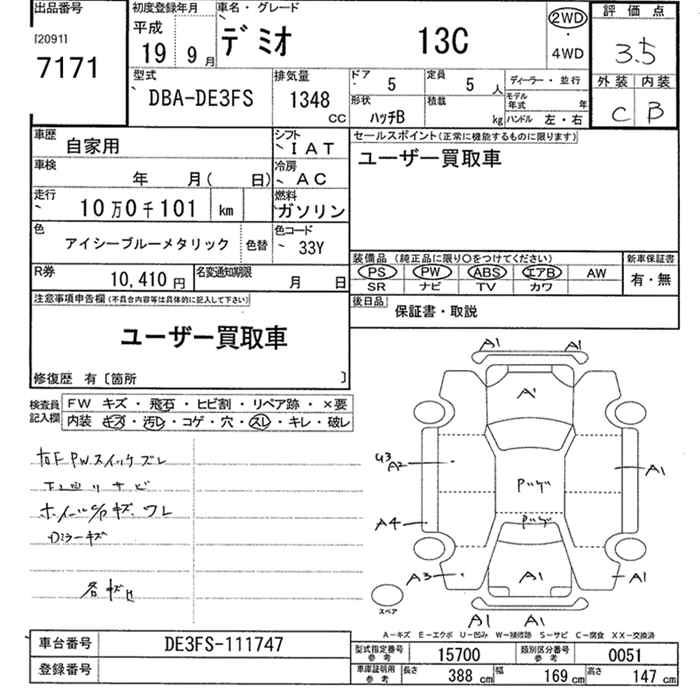 出品番号
[2091]
7171
初度登録年月
平成
19 9 月
車名・グレード
デミオ 13C
2WD
・
4WD
評価点
3.5
外装 内装
C B
型式
DBA-DE3FS
排気量
1348
CC
ドア 5
定員 5 人
形状 ハッチB
積載 kg
ディーラー・並行
モデル年式 年
ハンドル 左・右
車歴 自家用
シフト I AT
車検 年 月( 日)
冷房 AC
走行 10万0千101 km
燃料 ガソリン
色 アイシーブルーメタリック 色替
色コード 33Y
R券 10,410 円
名変通知期限 月 日
セールスポイント(正常に機能するものに限ります)
ユーザー買取車
装備品 (純正品に限り〇をつけてください) 新車保証書
PS PW ABS エアB AW 有・無
SR ナビ TV カワ
後日品
保証書・取説
注意事項申告欄(不具合内容等は具体的に記入して下さい)
ユーザー買取車
修復歴 有〔箇所 〕
検査員記入欄
FW キズ・飛石・ヒビ割・リペア跡・×要
内装 キズ・汚レ・コゲ・穴・スレ・キレ・破レ
右F PWスイッチズレ
ホイールC/P キズ、ワレ
Dミラーキズ
各キズ
A1 A1
A1
U3
A2
A1
A4
A3
A1
A1
A1 A1
スペア
A-キズ E-エクボ U-凹み W-補修跡 S-サビ C-腐食 XX-交換済
車台番号 DE3FS-111747
登録番号
型式指定番号 参考 15700
類別区分番号 参考 0051
車庫証明用 参考 長さ 388 cm 幅 169 cm 高さ 147 cm